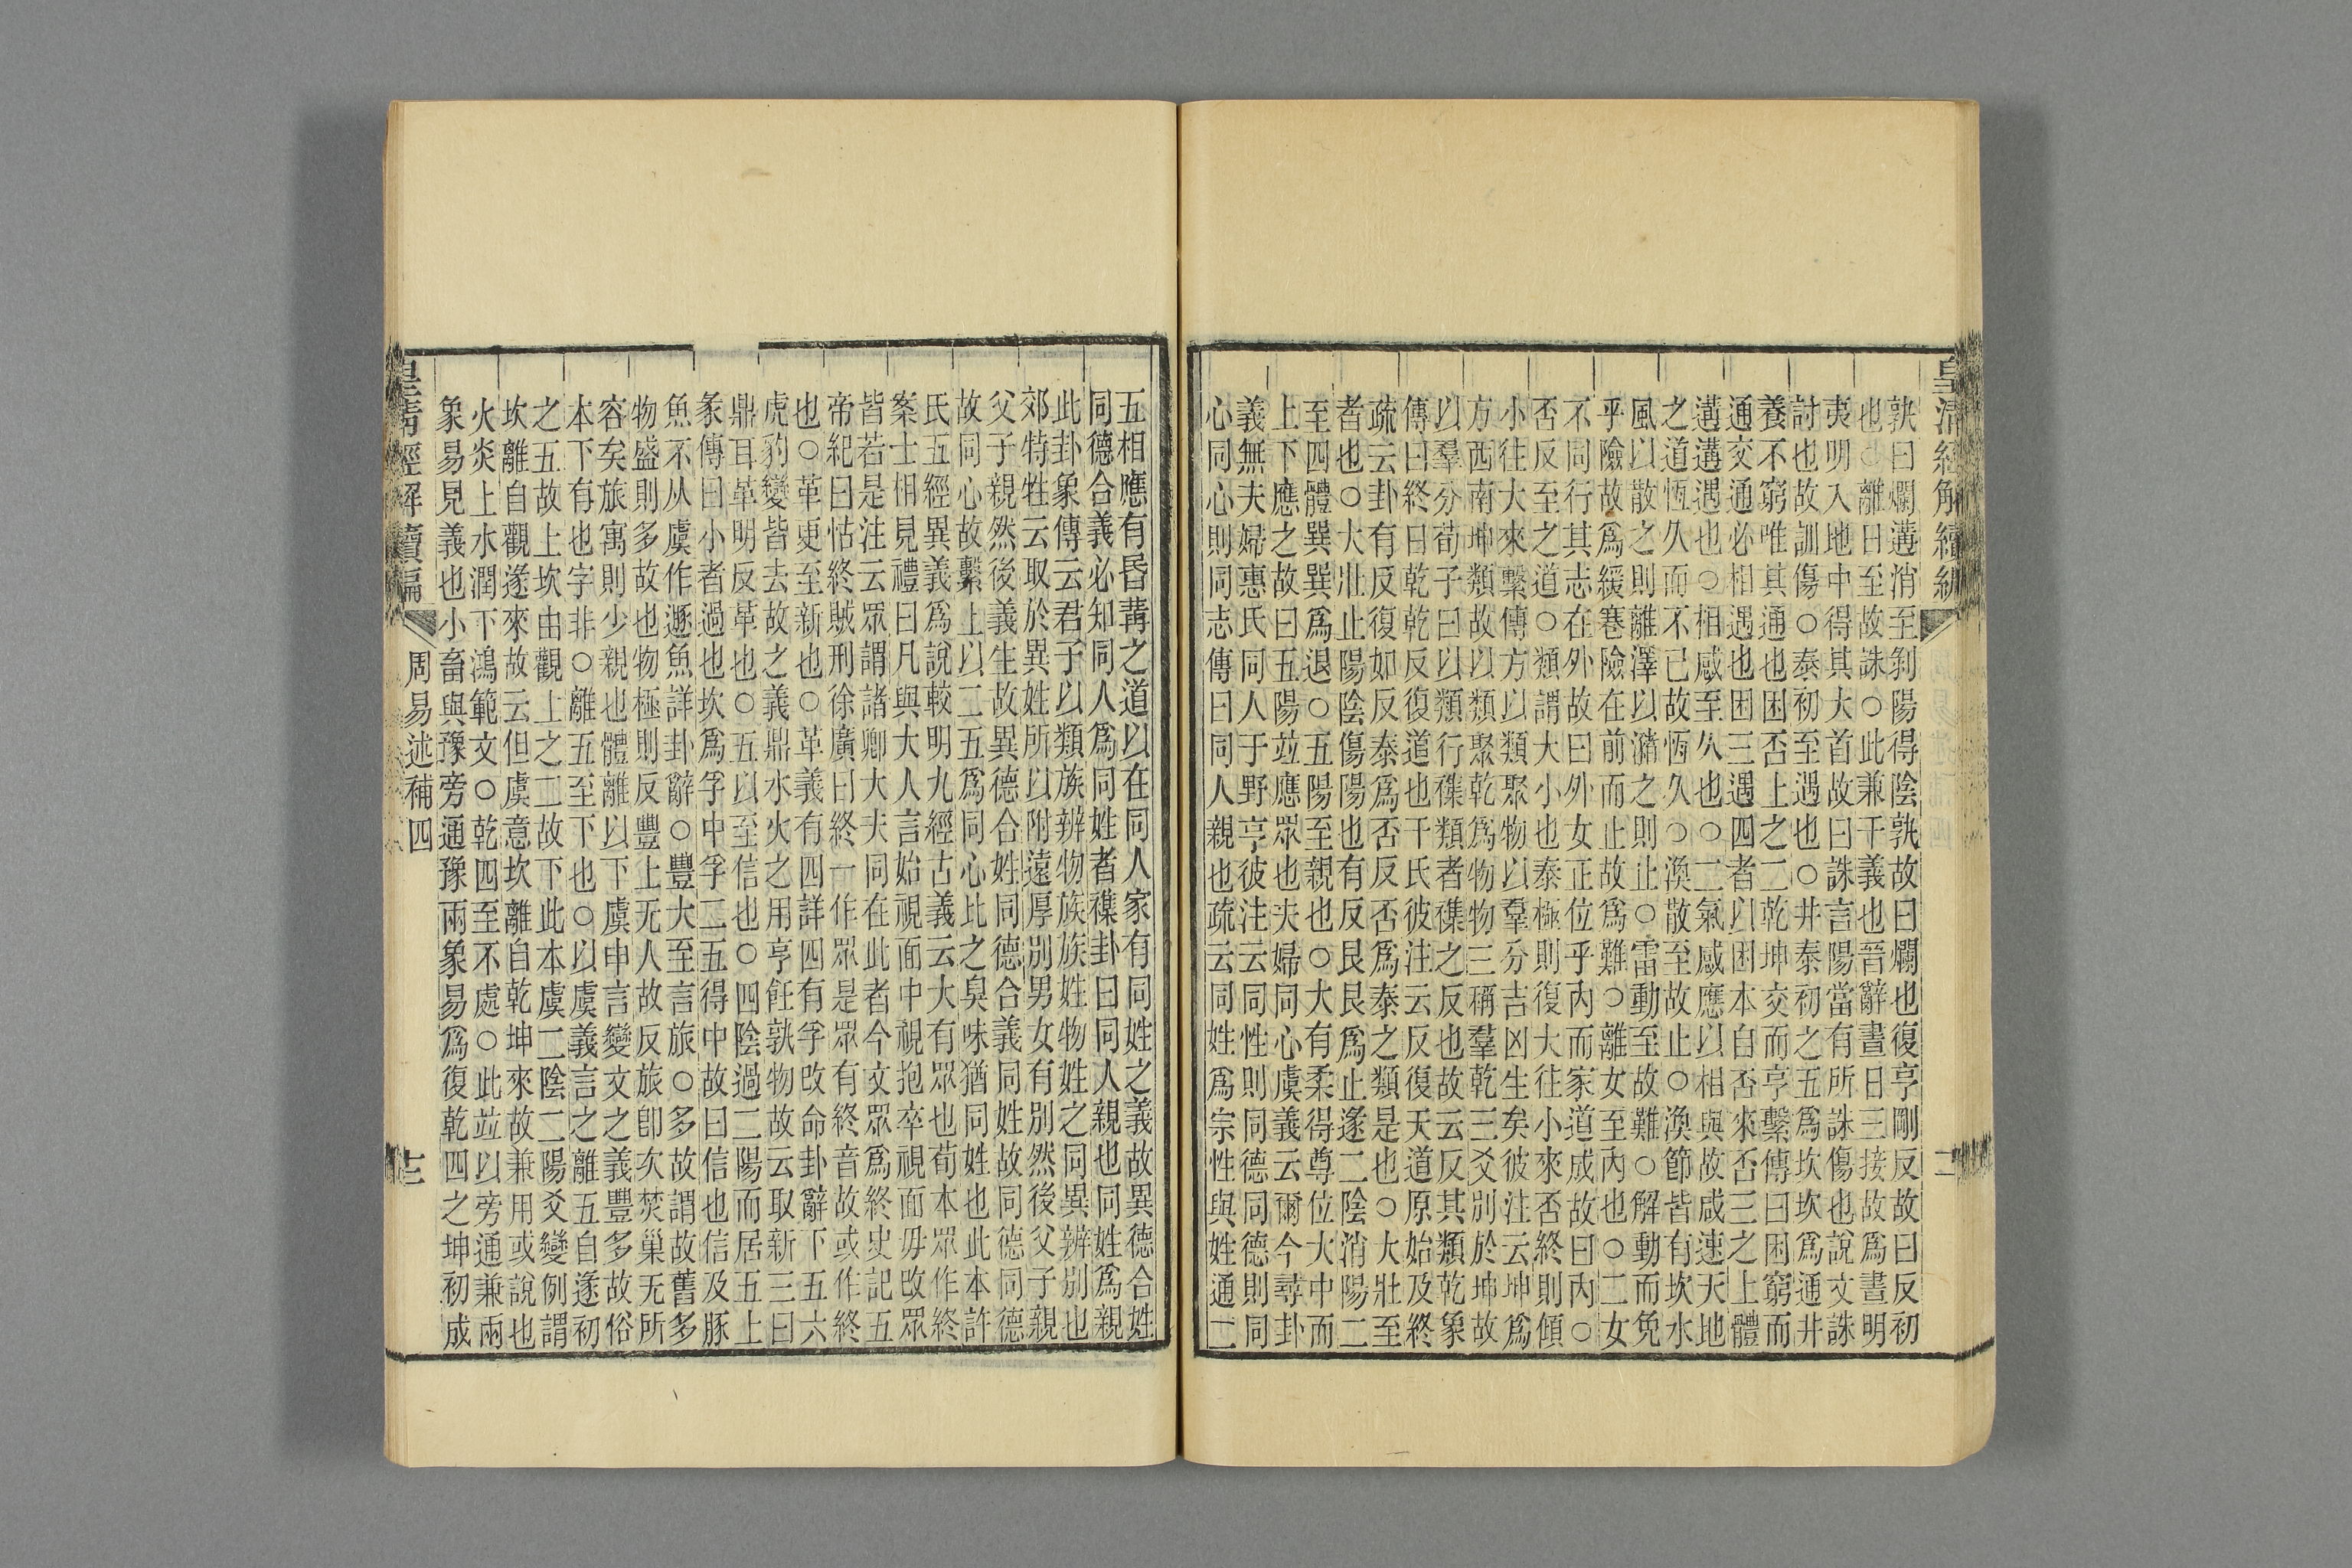 孰曰爛遘消至剝陽得陰孰故曰爛也復亨剛反故曰反初
也○離日至故誅○此兼干義也晉辭晝日三接故爲晝明
夷明入地中得其大首故曰誅言陽當有所誅傷也說文誅
討也故訓傷○泰初至遇也○井泰初之五爲坎坎爲通井
養不窮唯其通也困否上之二乾坤交而亨繫傳曰困窮而
通交通必相遇也困三遇四者以困本自否來否三之上體
遘遘遇也○相感至久也○二氣感應以相與故咸速天地
之道恆久而不已故恆久○渙散至故止○渙節皆有坎水
風以散之則離澤以瀦之則止○雷動至故難○解動而免
乎險故爲緩蹇險在前而止故爲難○離女至內也○二女
不同行其志在外故曰外女正位乎內而家道成故曰內○
否反至之道○類謂大小也泰極則復大往小來否終則傾
小往大來繫傳方以類聚物以羣分吉凶生矣彼注云坤爲
方西南坤類故以類聚乾爲物物三稱羣乾三爻別於坤故
以羣分荀子曰以類行襍類者襍之反也故云反其類乾象
傳曰終日乾乾反復道也干氏彼注云反復天道原始及終
疏云卦有反復如反泰爲否反否爲泰之類是也○大壯至
者也○大壯止陽陰傷陽也有反艮艮爲止遂二陰消陽二
至四體巽巽爲退○五陽至親也○大有柔得尊位大中而
上下應之故曰五陽竝應眾也夫婦同心虞義云爾今尋卦
義無夫婦惠氏同人于野亨彼注云同性則同德同德則同
心同心則同志傳曰同人親也疏云同姓爲宗性與姓通二
五相應有昏冓之道以在同人家有同姓之義故異德合姓
同德合義必知同人爲同姓者襍卦曰同人親也同姓爲親
此卦象傳云君子以類族辨物族族姓物姓之同異辨別也
郊特牲云取於異姓所以附遠厚別男女有別然後父子親
父子親然後義生故異德合姓同德合義同姓故同德同德
故同心故繫上以二五爲同心比之臭味猶同姓也此本許
氏五經異義爲說較明九經古義云大有眾也荀本眾作終
案士相見禮曰凡與大人言始視面中視抱卒視面毋改眾
皆若是注云眾謂諸卿大夫同在此者今文眾爲終史記五
帝紀曰怙終賊刑徐廣曰終一作眾是眾有終音故或作終
也○革更至新也○革義有四詳四有孚改命卦辭下五六
虎豹變皆去故之義鼎水火之用亨飪孰物故云取新三曰
鼎耳革明反革也○五以至信也○四陰過二陽而居五上
彖傳曰小者過也坎爲孚中孚二五得中故曰信也信及豚
魚不从虞作遯魚詳卦辭○豐大至言旅○多故謂故舊多
物盛則多故也物極則反豐上无人故反旅卽次焚巢无所
容矣旅寓則少親也體離以下虞申言變文之義豐多故俗
本下有也字非○離五至下也○以虞義言之離五自遂初
之五故上坎由觀上之二故下此本虞二陰二陽爻變例謂
坎離自觀遂來故云但虞意坎離自乾坤來故兼用或說也
火炎上水潤下鴻範文○乾四至不處○此竝以旁通兼兩
象易見義也小畜與豫旁通豫兩象易爲復乾四之坤初成
皇清經解續編
周易述補四